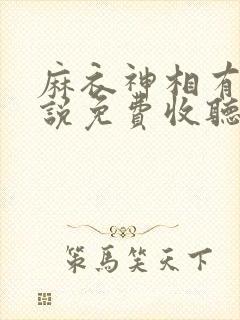 麻衣神相有
說免費收聽
策馬笑天下